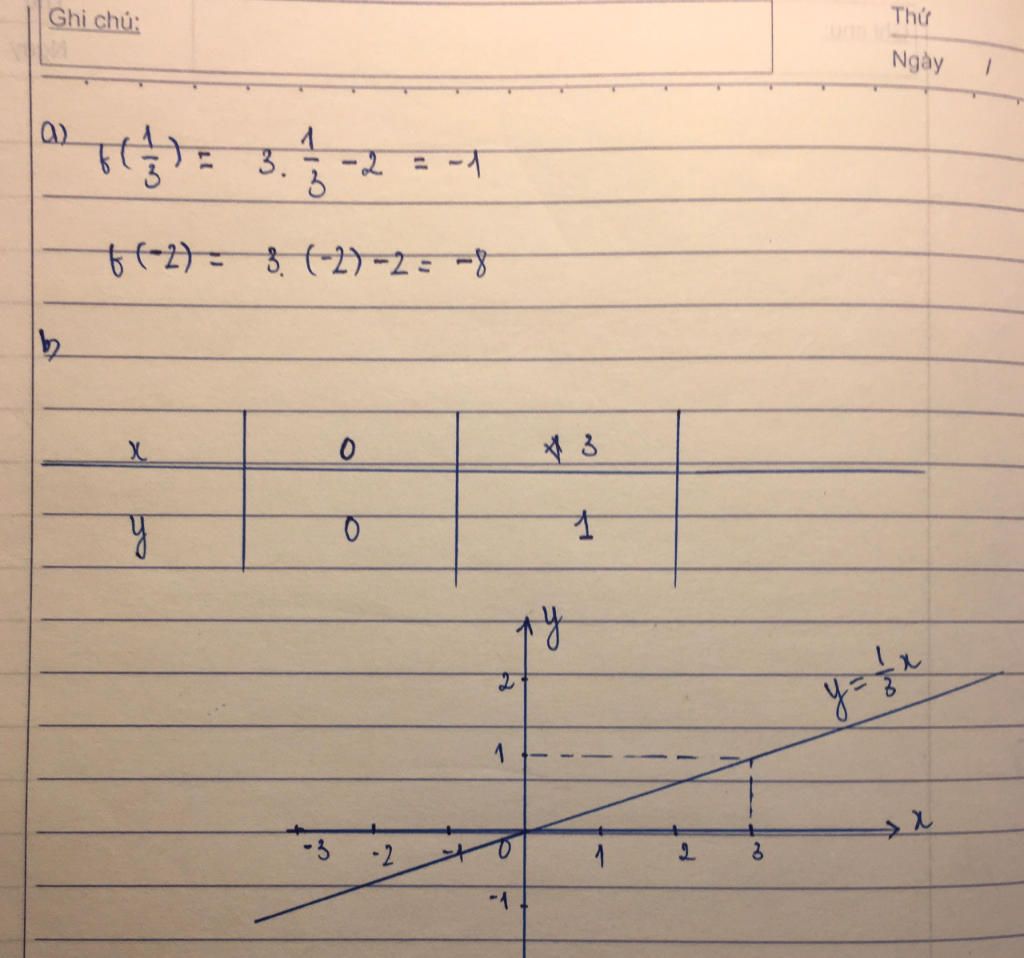 Ghi chú:
Thứ
Ngày /
a) f(1/3) = 3. 1/3 - 2 = -1
f(-2) = 3. (-2) - 2 = -8
b)
x 0 3
y 0 1
y
y = 1/3 x
2
1
x
-3 -2 -1 0 1 2 3
-1